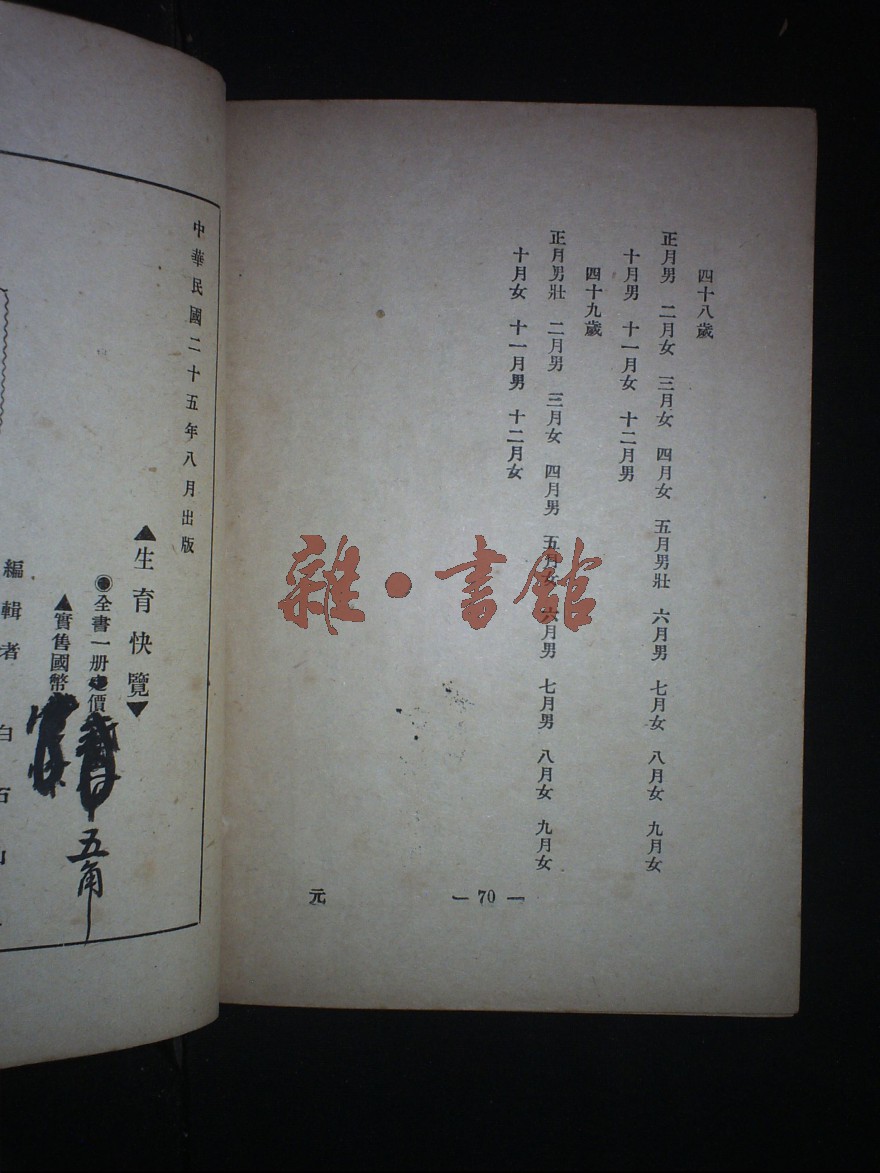 四十八歲
正月男 二月女 三月女 四月女 五月男壯 六月男 七月女 八月女 九月女
十月男 十一月女 十二月男
四十九歲
正月男壯 二月男 三月女 四月男 五月女 六月男 七月男 八月女 九月女
十月女 十一月男 十二月女
— 70 —
元
雜·書館
中華民國二十五年八月出版
▲生育快覽▼
◉全書一册定價
五角
▲實售國幣
編輯者 白石山